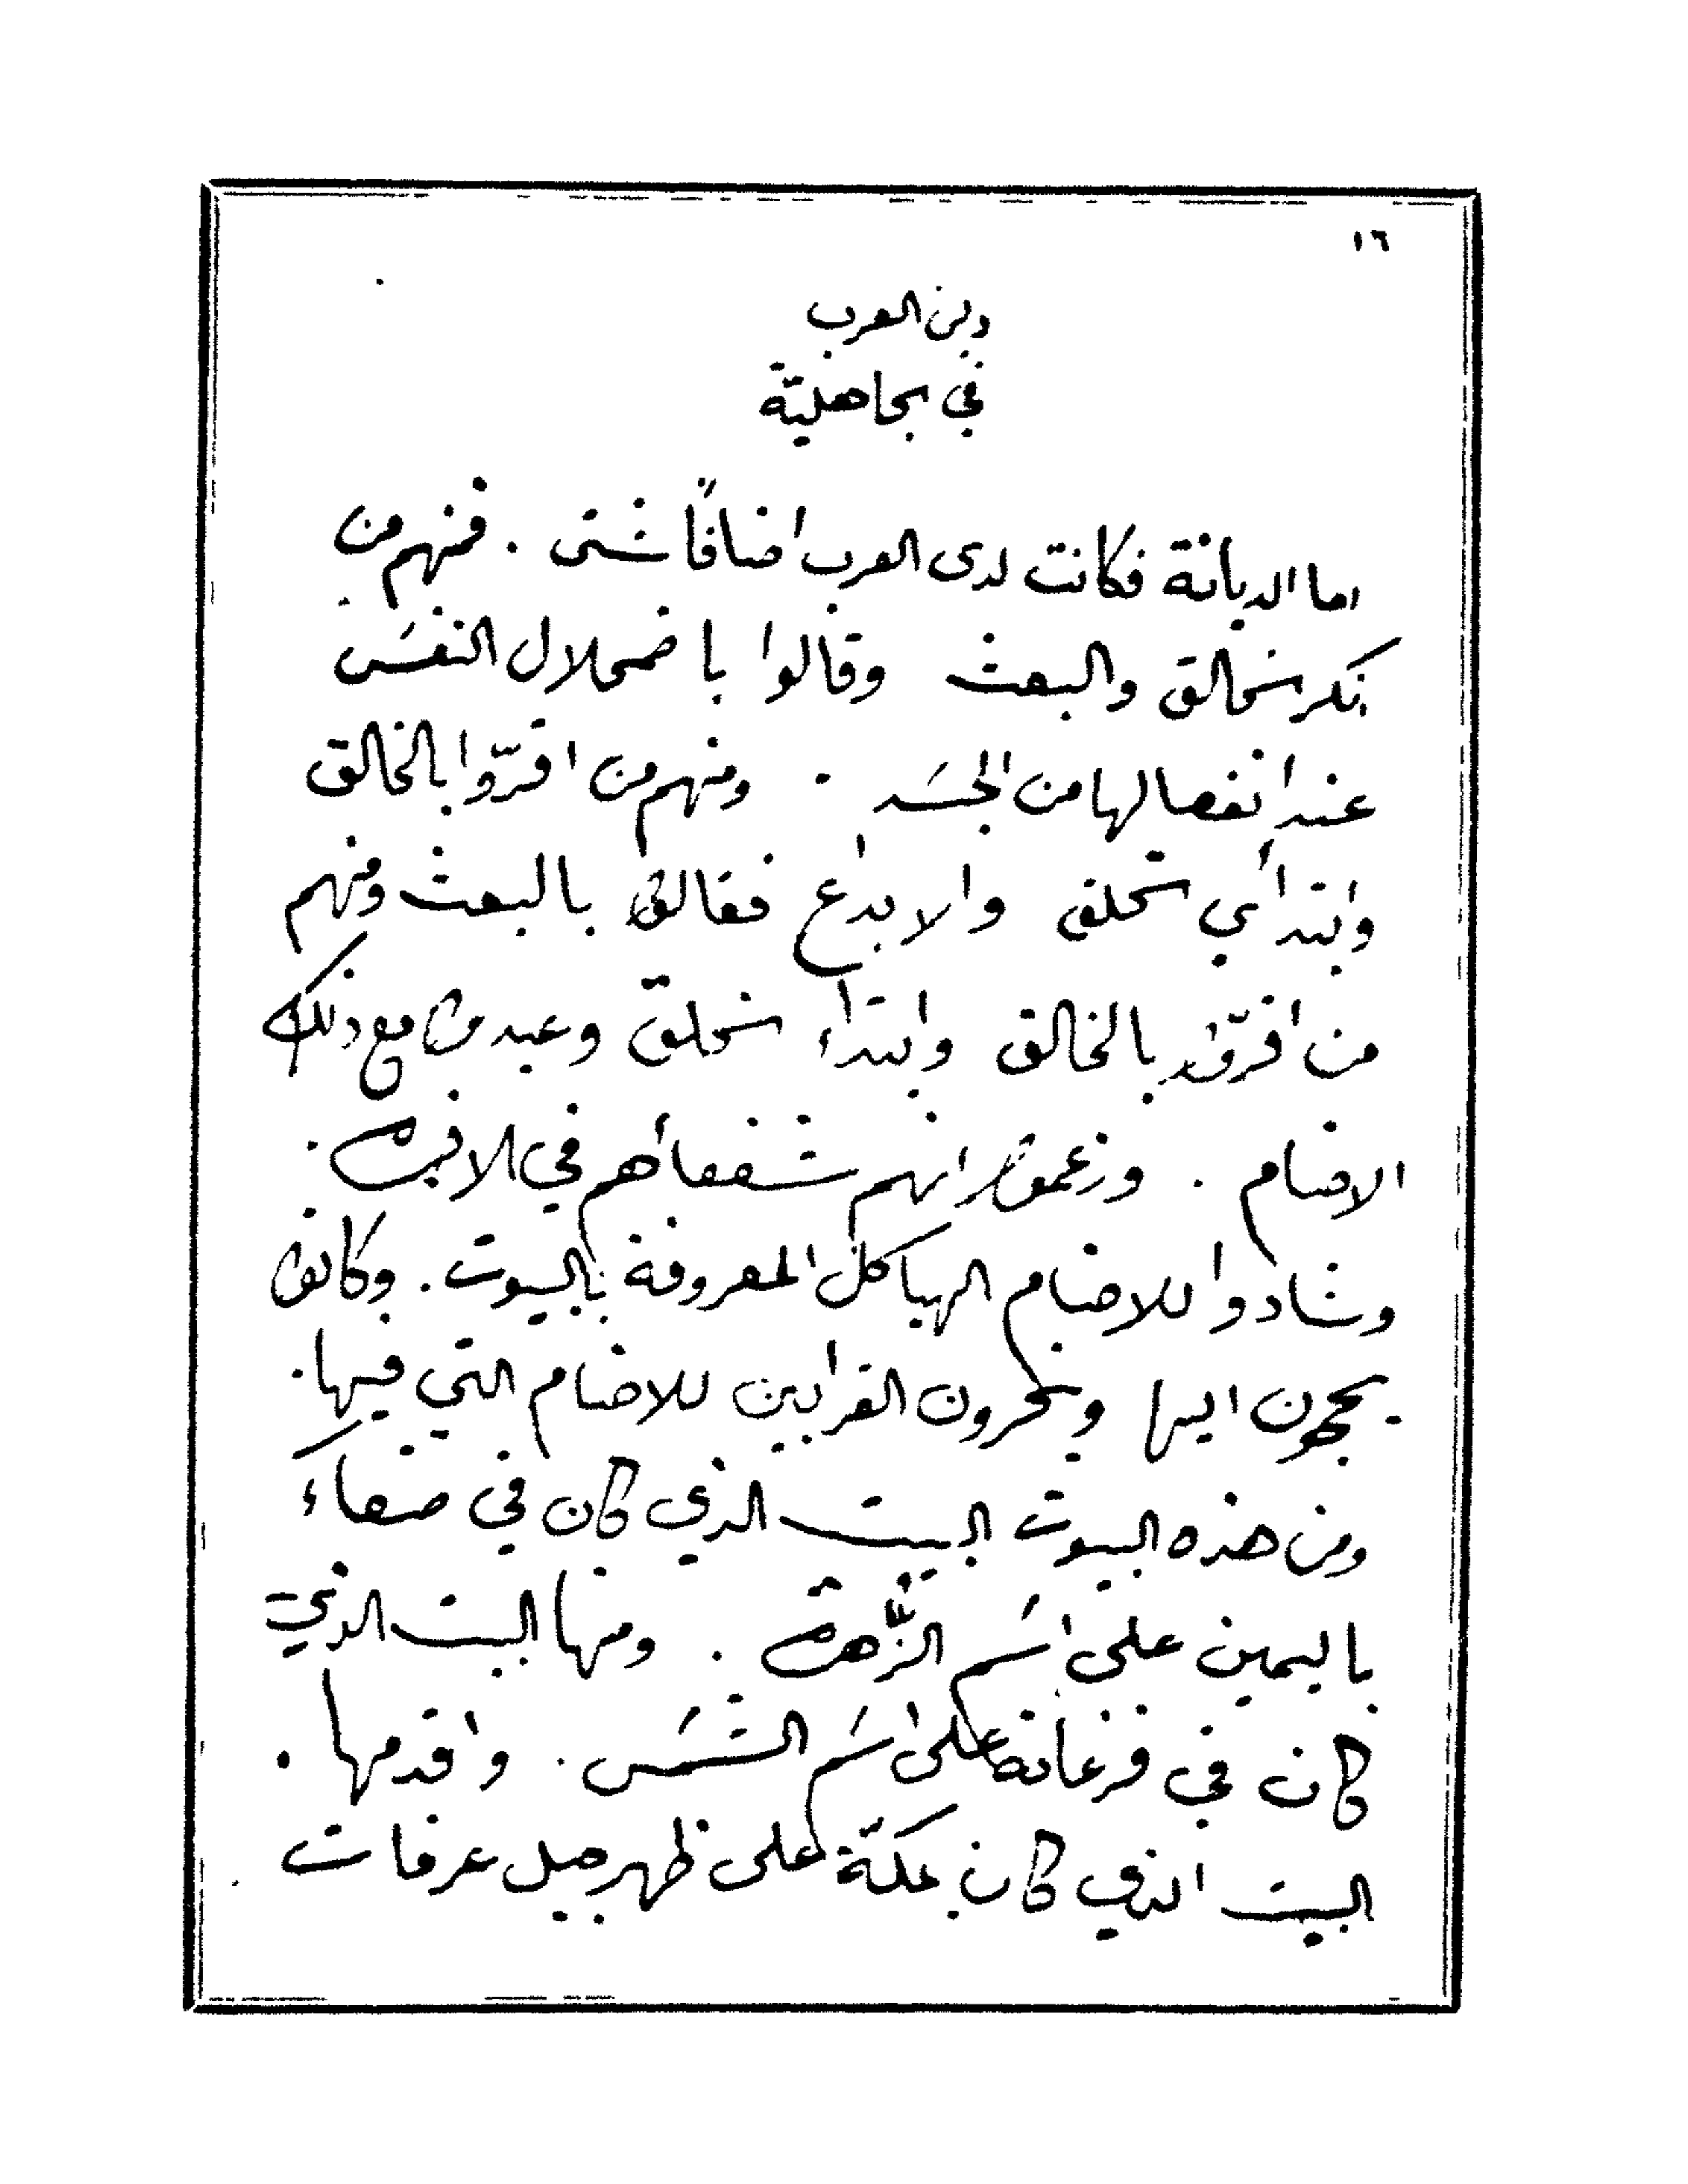 ١٦
دين العرب
في الجاهليّة
اما الديانة فكانت لدى العرب اصنافًا شتى . فمنهم من
انكر الخالق والبعث وقالوا باضمحلال النفس
عند انفصالها من الجسد . ومنهم من اقرّوا بالخالق
وابتدأي الخلق والابداع فقالوا بالبعث ومنهم
من اقرّوا بالخالق وابتداء الخلق وعبدوا مع ذلك
الاصنام . وزعموا انهم شفعاءهم في الاخرة .
وشادوا للاصنام الهياكل المعروفة بالبيوت . وكانوا
يحجون اليها وينحرون القرابين للاصنام التي فيها .
ومن هذه البيوت البيت الذي كان في صنعاء
باليمين على اسم الزُّهرة . ومنها البيت الذي
كان في فرغانة على اسم الشمس . واقدمها .
البيت الذي كان بمكّة على ظهر جبل عرفات